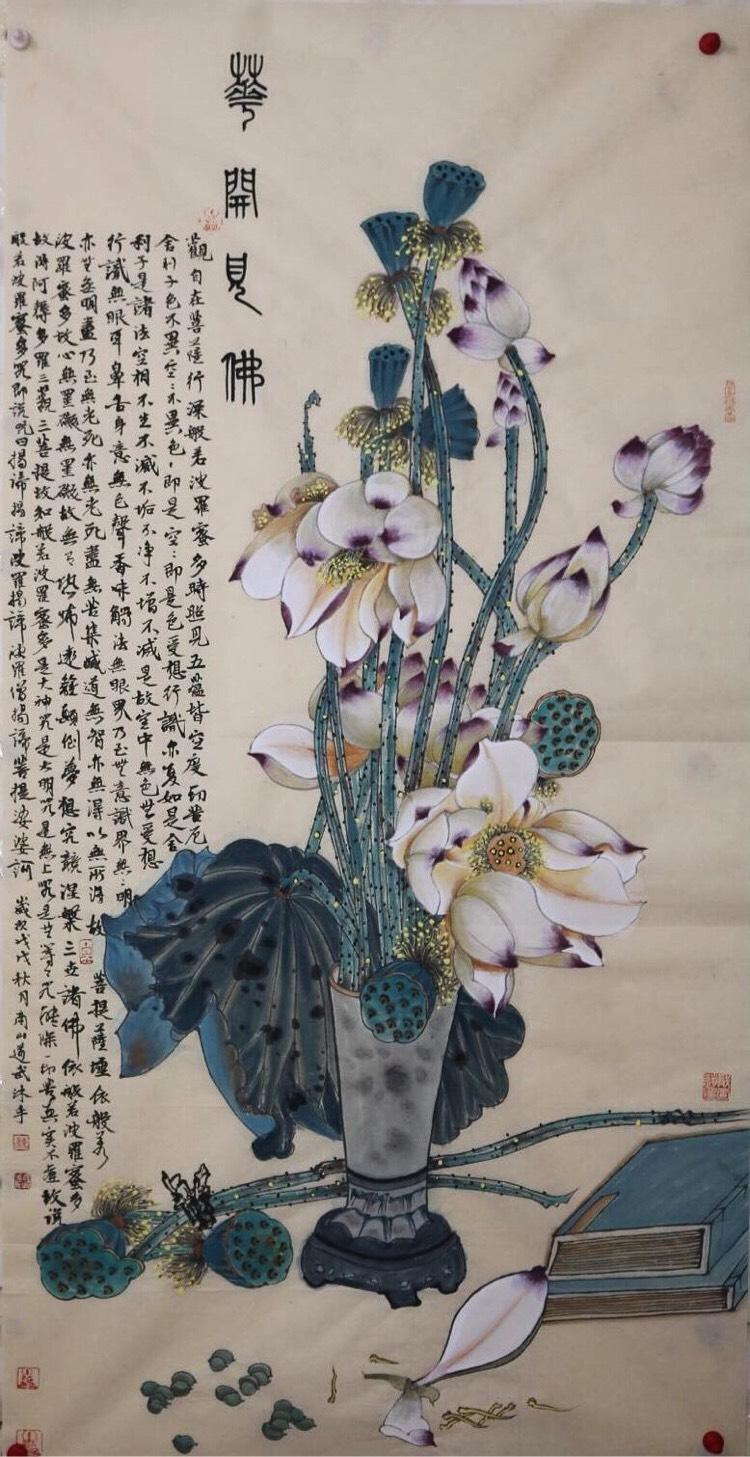 華開見佛
觀自在菩薩行深般若波羅蜜多時照見五蘊皆空度一切苦厄
舍利子色不異空〻不異色〻即是空〻即是色受想行識亦复如是舍
利子是諸法空相不生不滅不垢不净不增不減是故空中無色世受想
行識無眼耳鼻舌身意無色聲香味觸法無眼界乃至世意識界無〻明
亦世無明盡乃至無老死亦無老死盡無苦集滅道無智亦無得以無所得故 菩提薩埵依般若
波羅蜜多故心無罣礙無罣礙故無有恐怖遠離顛倒夢想究竟涅槃三世諸佛依般若波羅蜜多
故得阿耨多羅三藐三菩提故知般若波羅蜜多是大神咒是大明咒是無上咒是世等〻咒能除一切苦真实不虛故說
般若波羅蜜多咒即說咒曰揭諦揭諦波羅揭諦波羅僧揭諦菩提娑婆訶 歲次戊戌秋月南山道武沐手